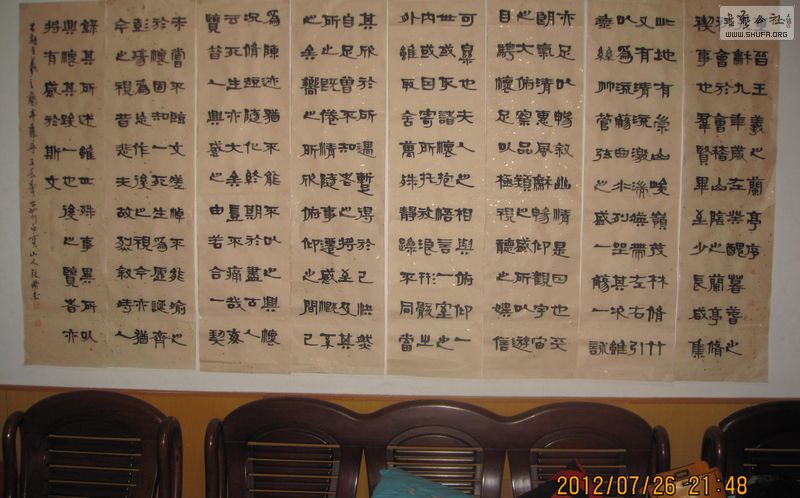 晉王羲之蘭亭序
和九年歲在癸丑暮春之
會於會稽山陰之蘭亭脩
禊事也羣賢畢至少長咸集
此地有崇山峻嶺茂林脩竹
又有清流激湍映帶左右引
以為流觴曲水列坐其次雖
無絲竹管弦之盛一觴一詠
亦足以暢敘幽情是日也天
朗氣清惠風和暢仰觀宇宙
之大俯察品類之盛所以遊
目騁懷足以極視聽之娛信
可樂也夫人之相與俯仰一
世或取諸懷抱悟言一室之
內或因寄所託放浪形骸之
外雖取舍萬殊靜躁不同當
其欣於所遇暫得於己快然
自足曾不知老之將至及其
所之既倦情隨事遷感慨係
之矣嚮之所欣俯仰之間已
為陳迹猶不能不以之興懷
況脩短隨化終期於盡古人
云死生亦大矣豈不痛哉每
覽昔人興感之由若合一契
未嘗不臨文嗟悼不能喻之
於懷固知一死生為虛誕齊
彭殤為妄作後之視今亦猶
今之視昔悲夫故列敘時人
錄其所述雖世殊事異所以
興懷其致一也後之覽者亦
將有感於斯文
書法公社
WWW.SHUFA.ORG
2012/07/26 21:48